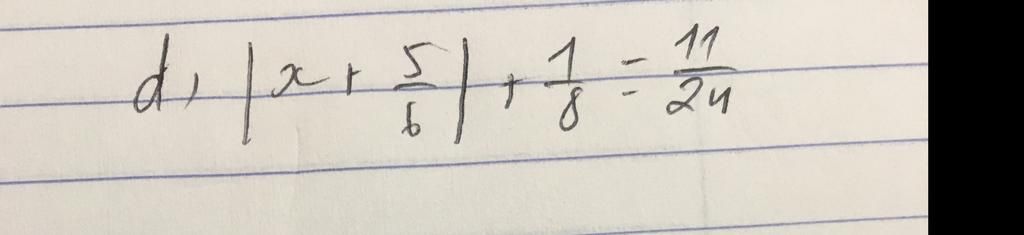 d, |x + 5/6| + 1/8 = 11/24